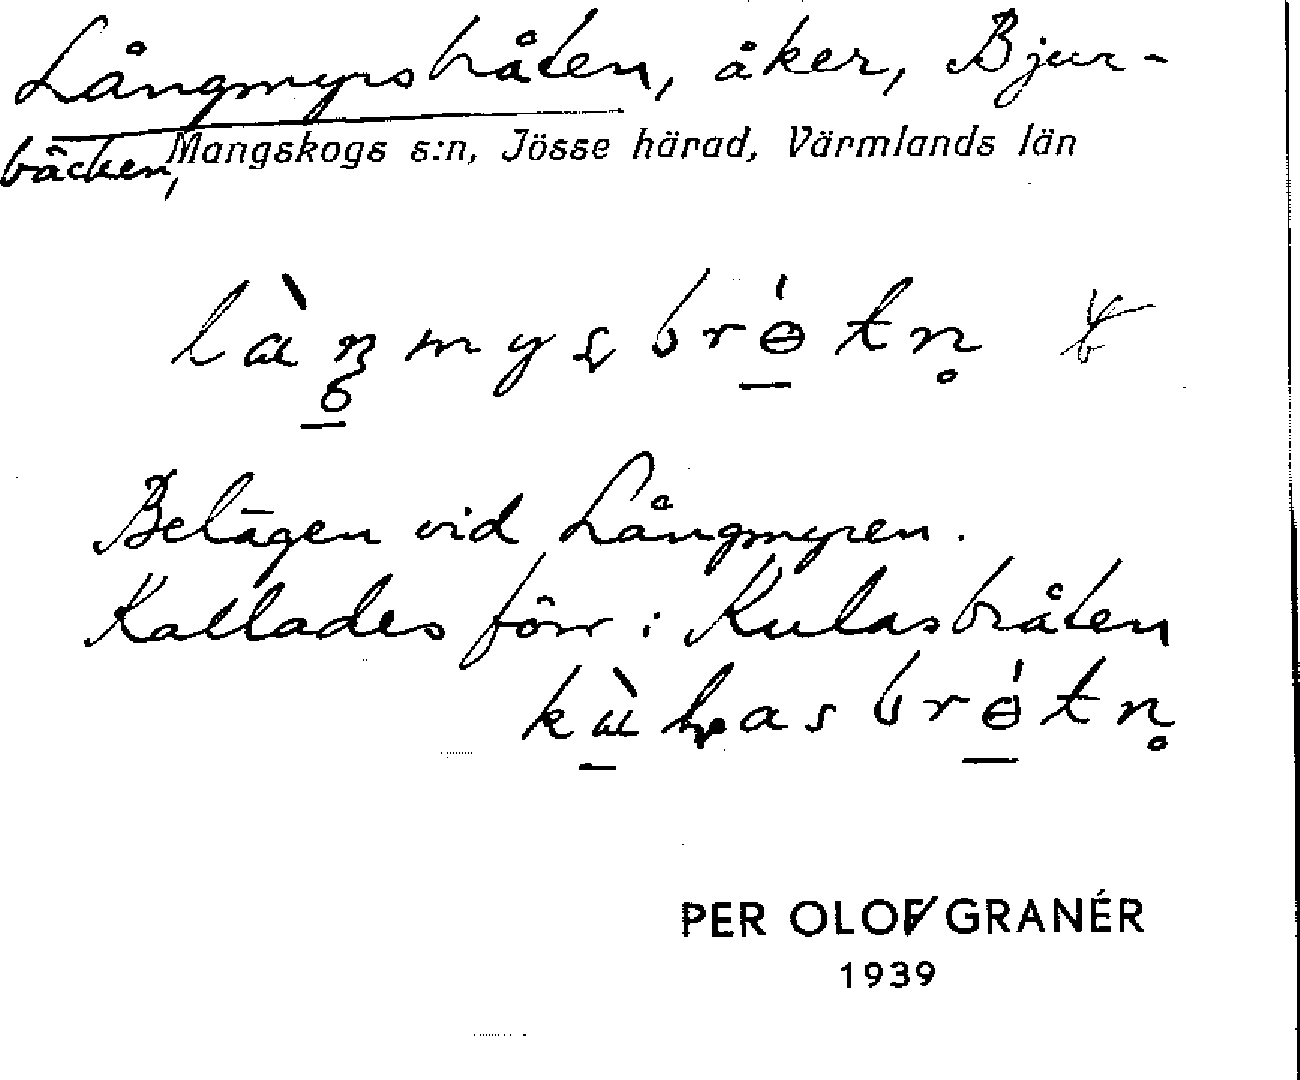 Långmyrsbråten, åker, Bjur-
bäcken, Mangskogs s:n, Jösse härad, Värmlands län
Belägen vid Långmyren.
Kallades förr i Kulasbråten
PER OLOF GRANÉR
1939